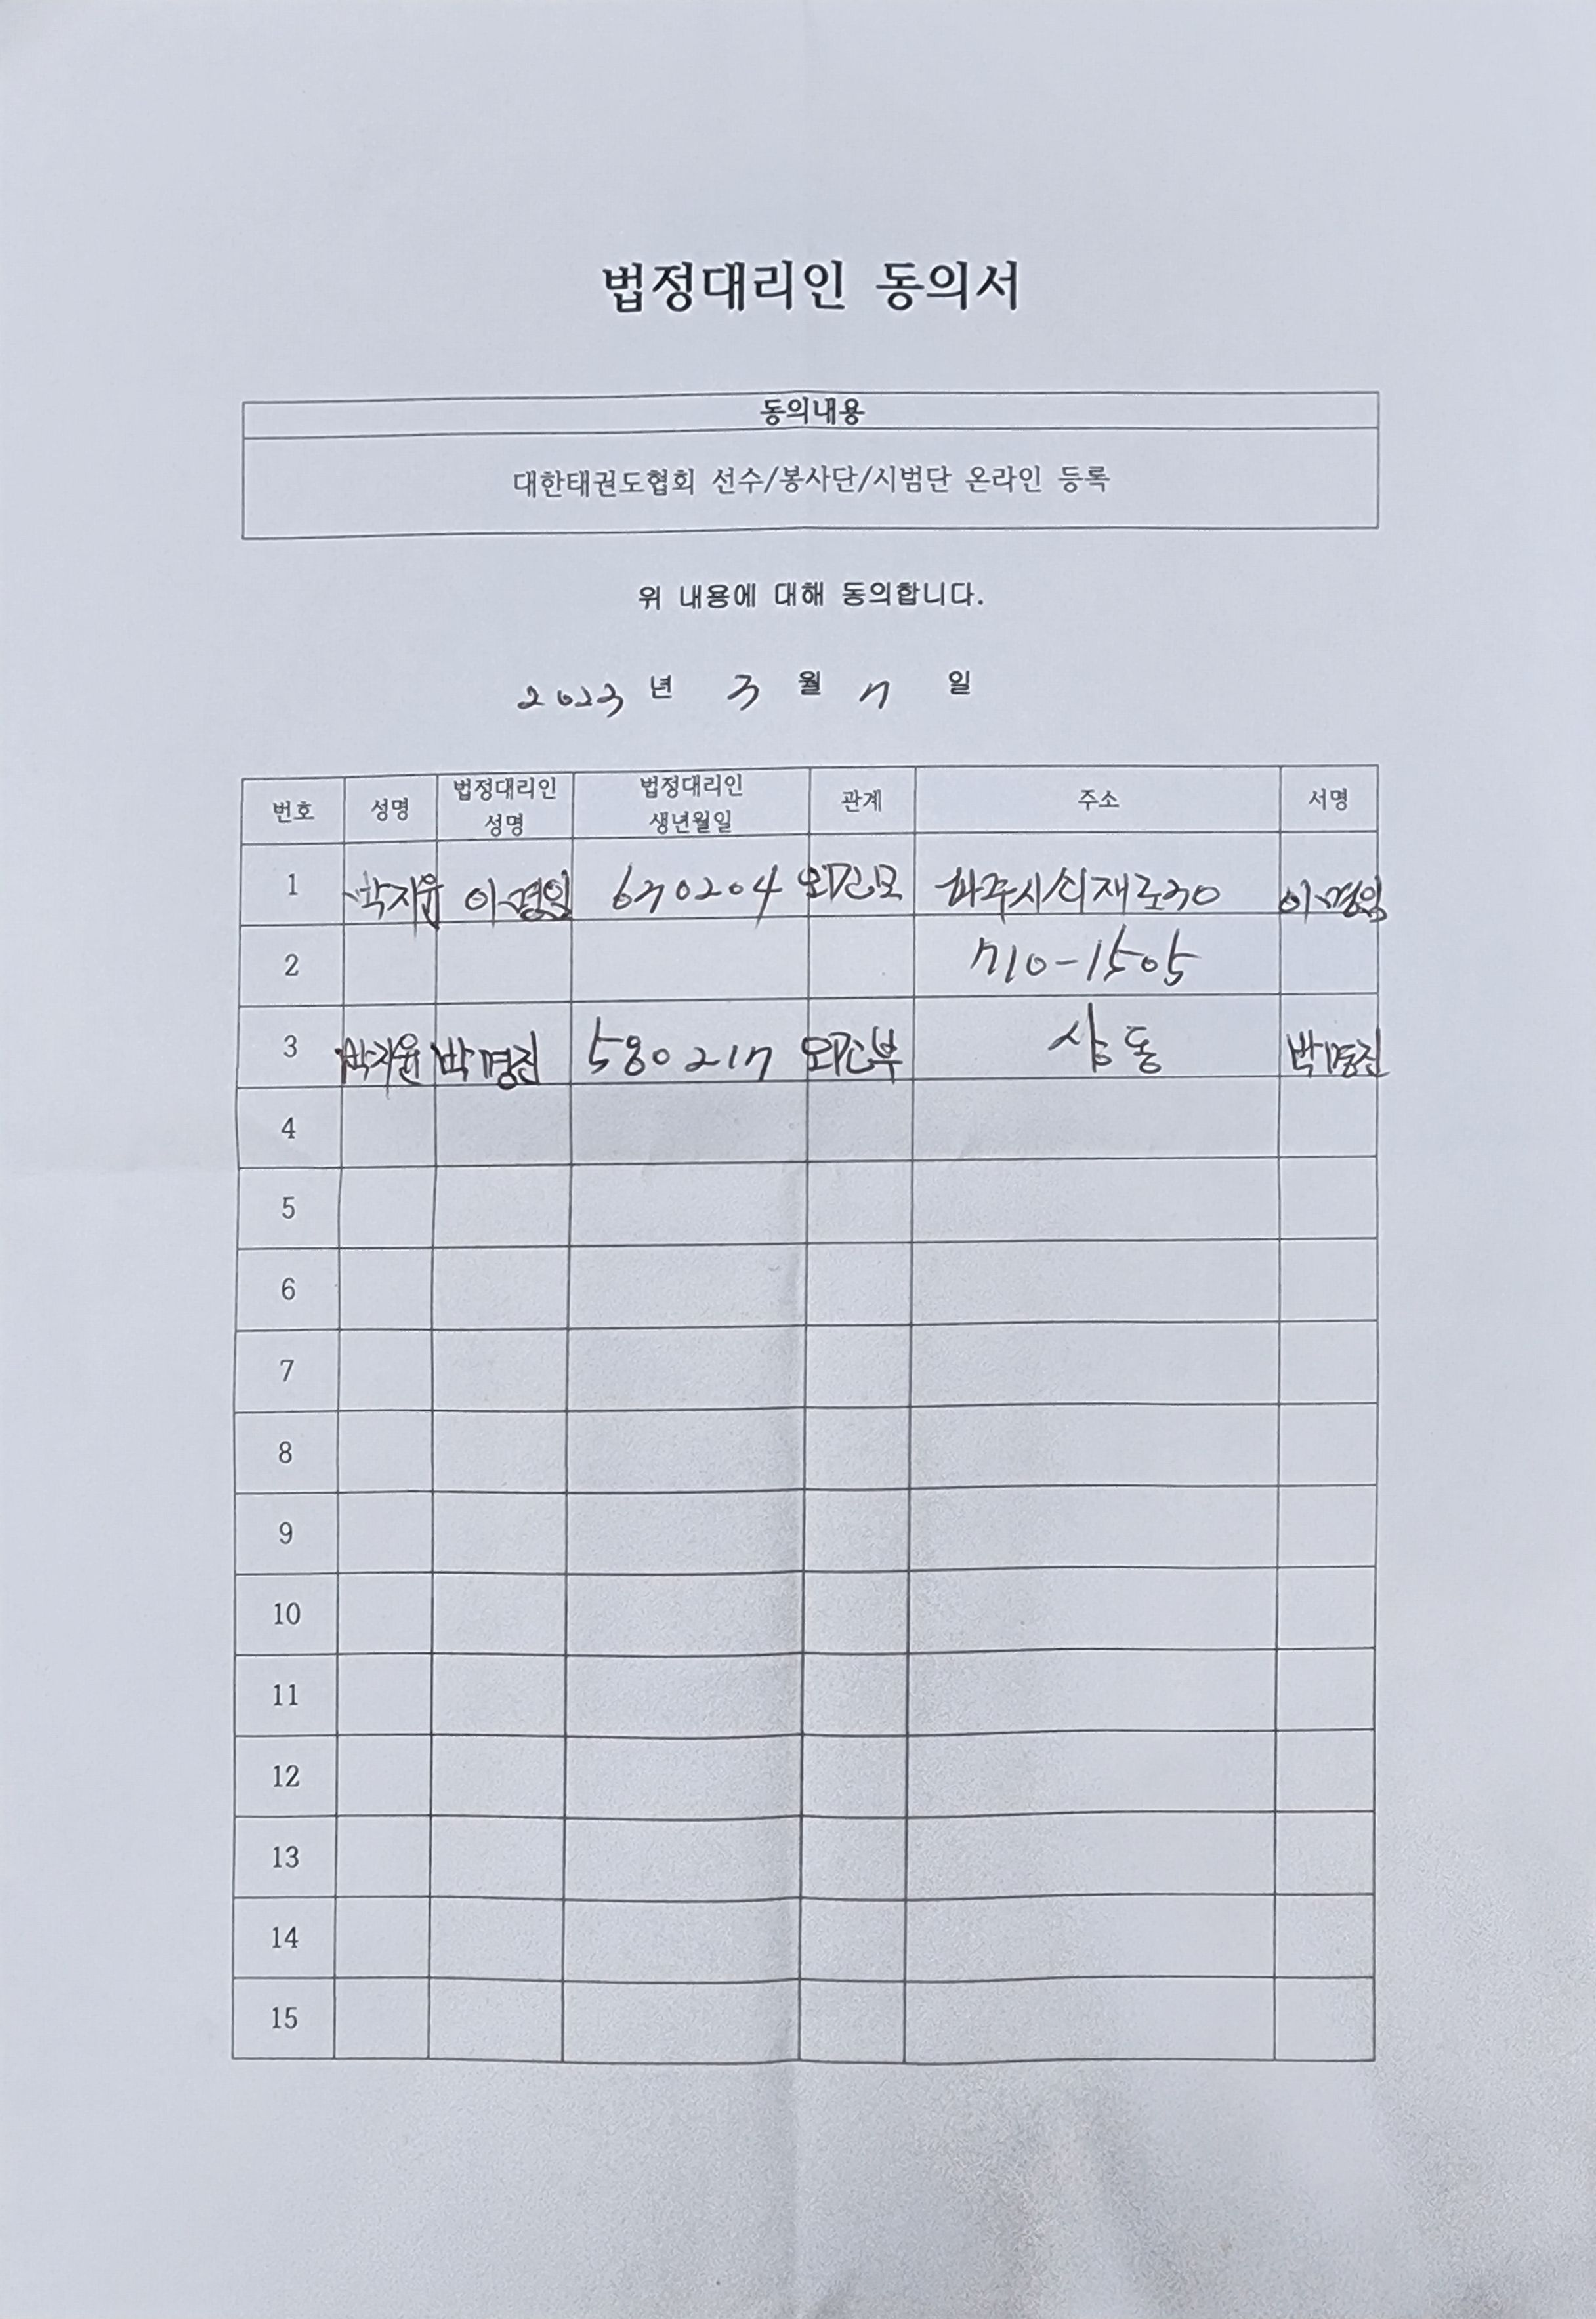 법정대리인 동의서
동의내용
대한태권도협회 선수/봉사단/시범단 온라인 등록
위 내용에 대해 동의합니다.
2023 년 3 월 7 일
번호 성명 법정대리인 성명 법정대리인 생년월일 관계 주소 서명
1 박지윤 이명임 630204 외조모 파주시 쇠재로30 이명임
2 710-1505
3 박지윤 박명진 580217 외조부 상동 박명진
4
5
6
7
8
9
10
11
12
13
14
15